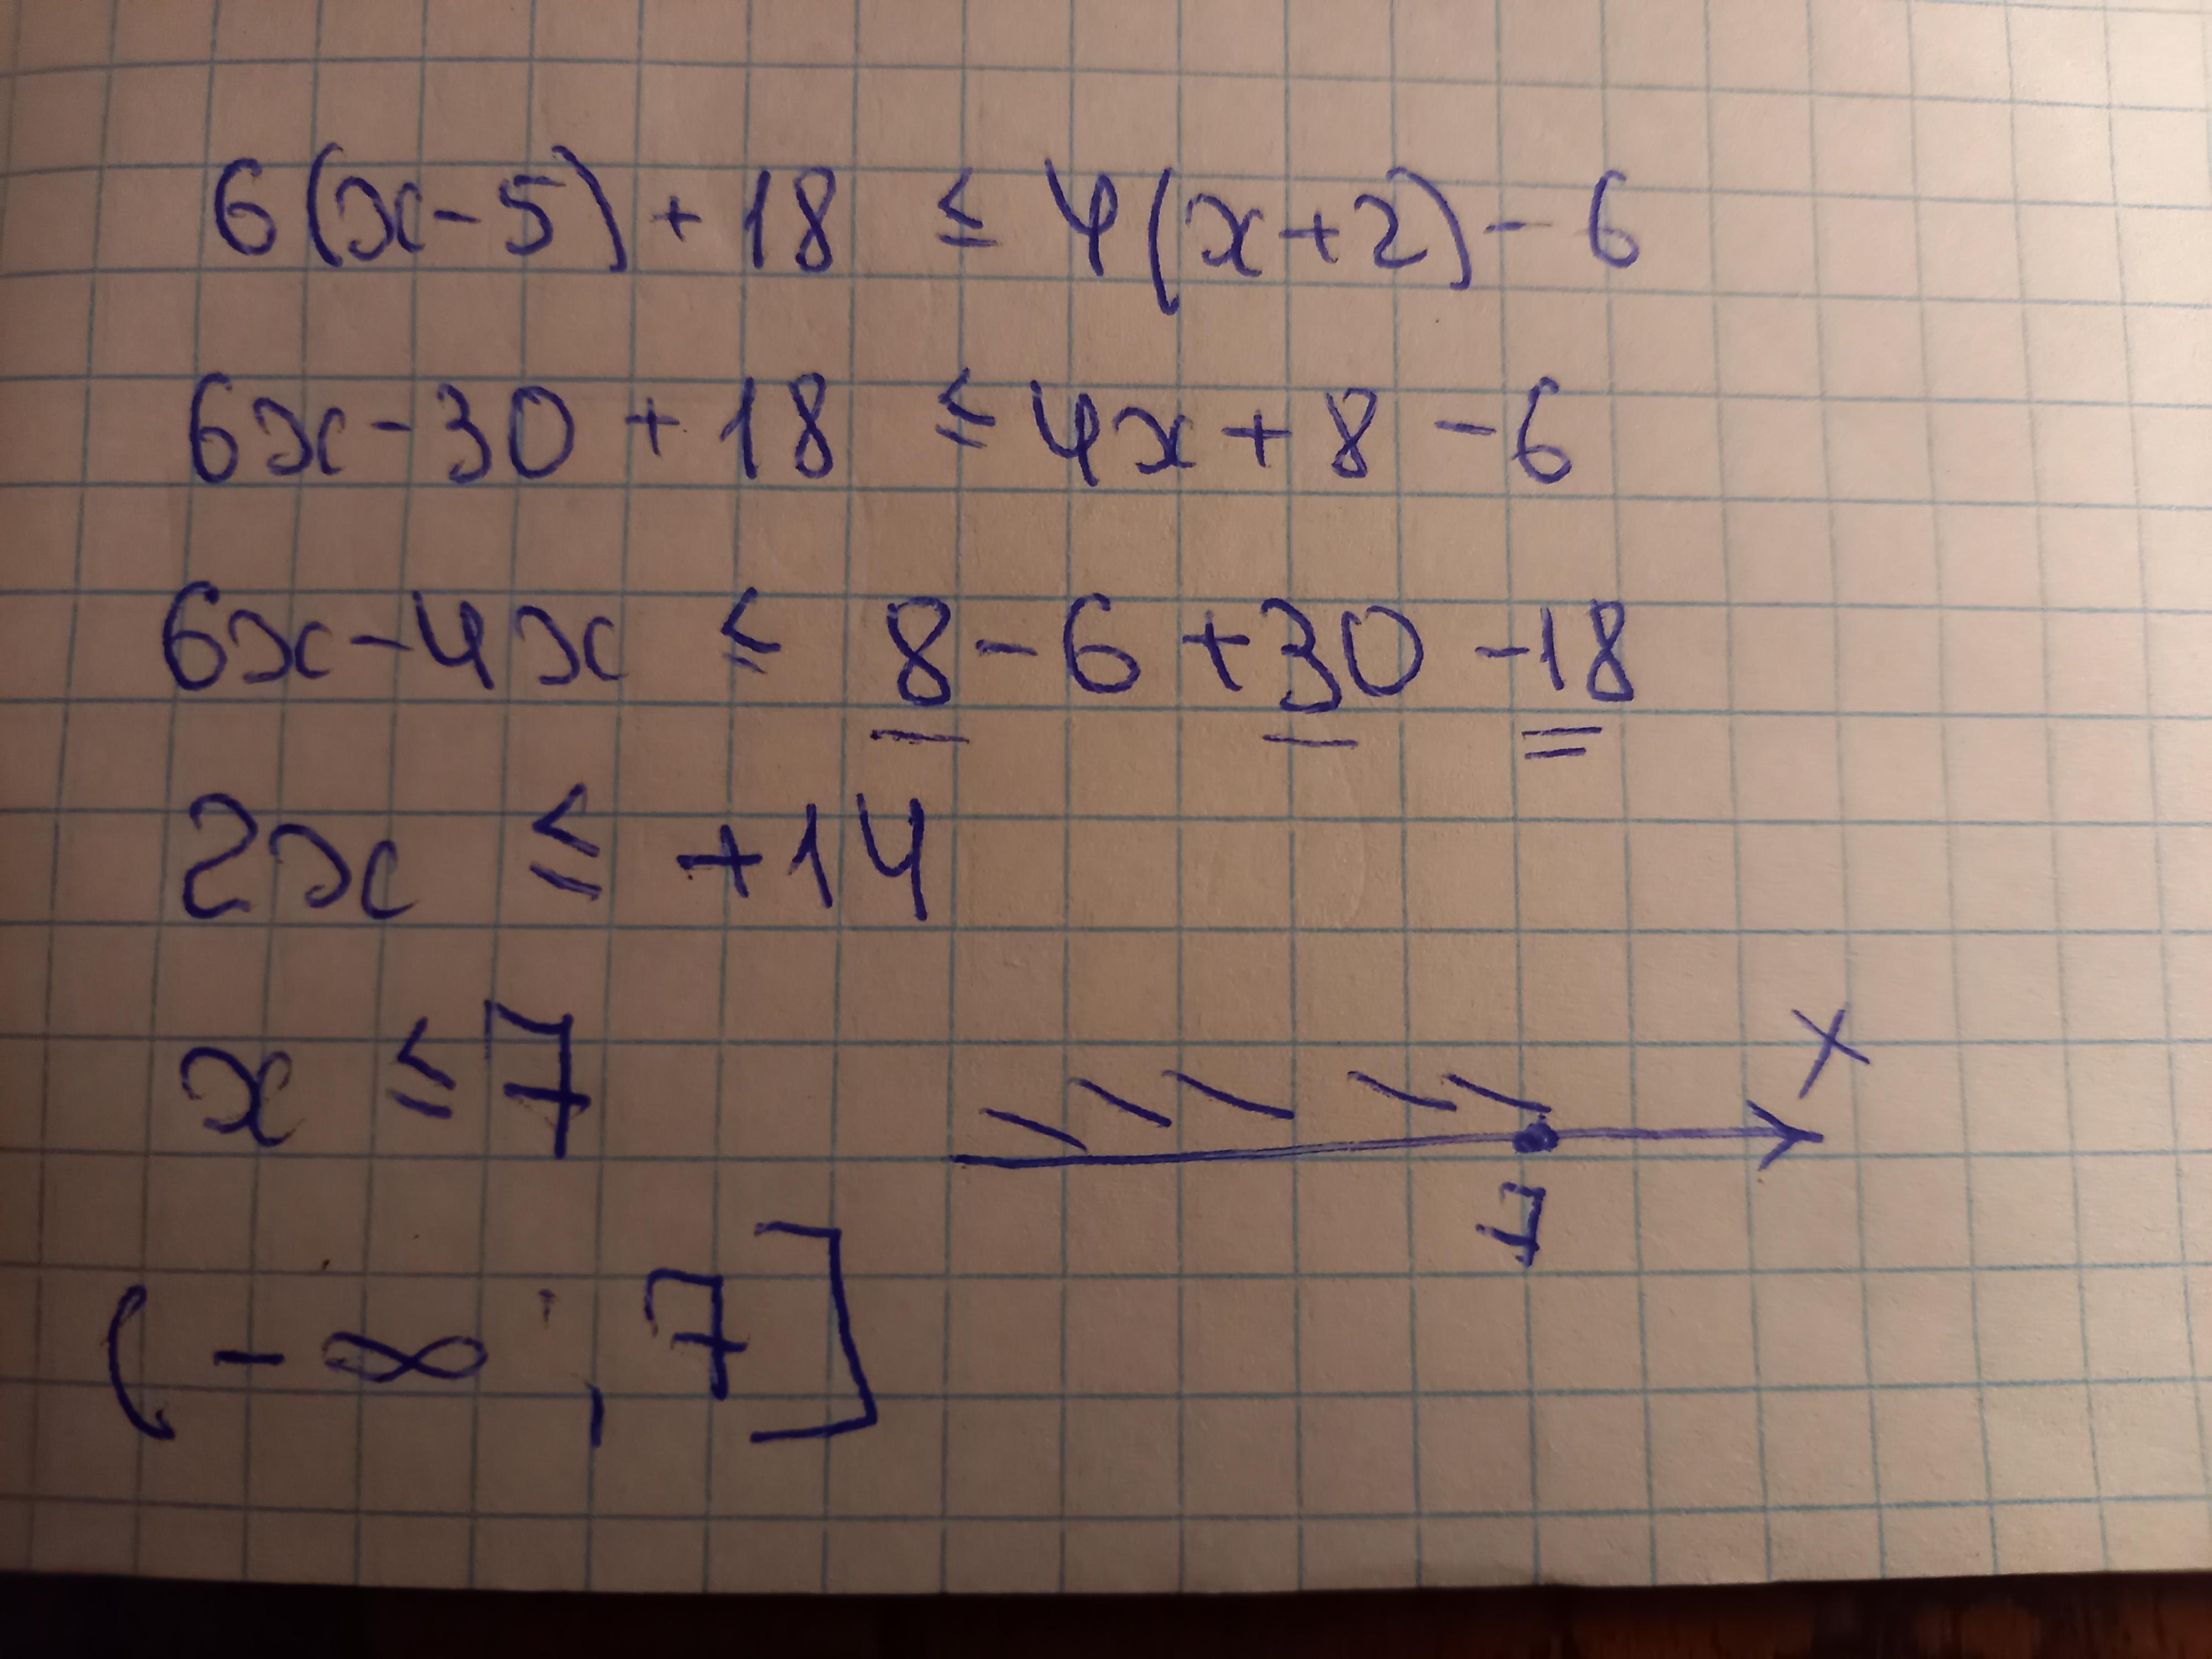 6(x-5)+18 ≤ 4(x+2)-6
6x-30+18 ≤ 4x+8-6
6x-4x ≤ 8-6+30-18
2x ≤ +14
x ≤ 7
x
7
(-∞, 7]